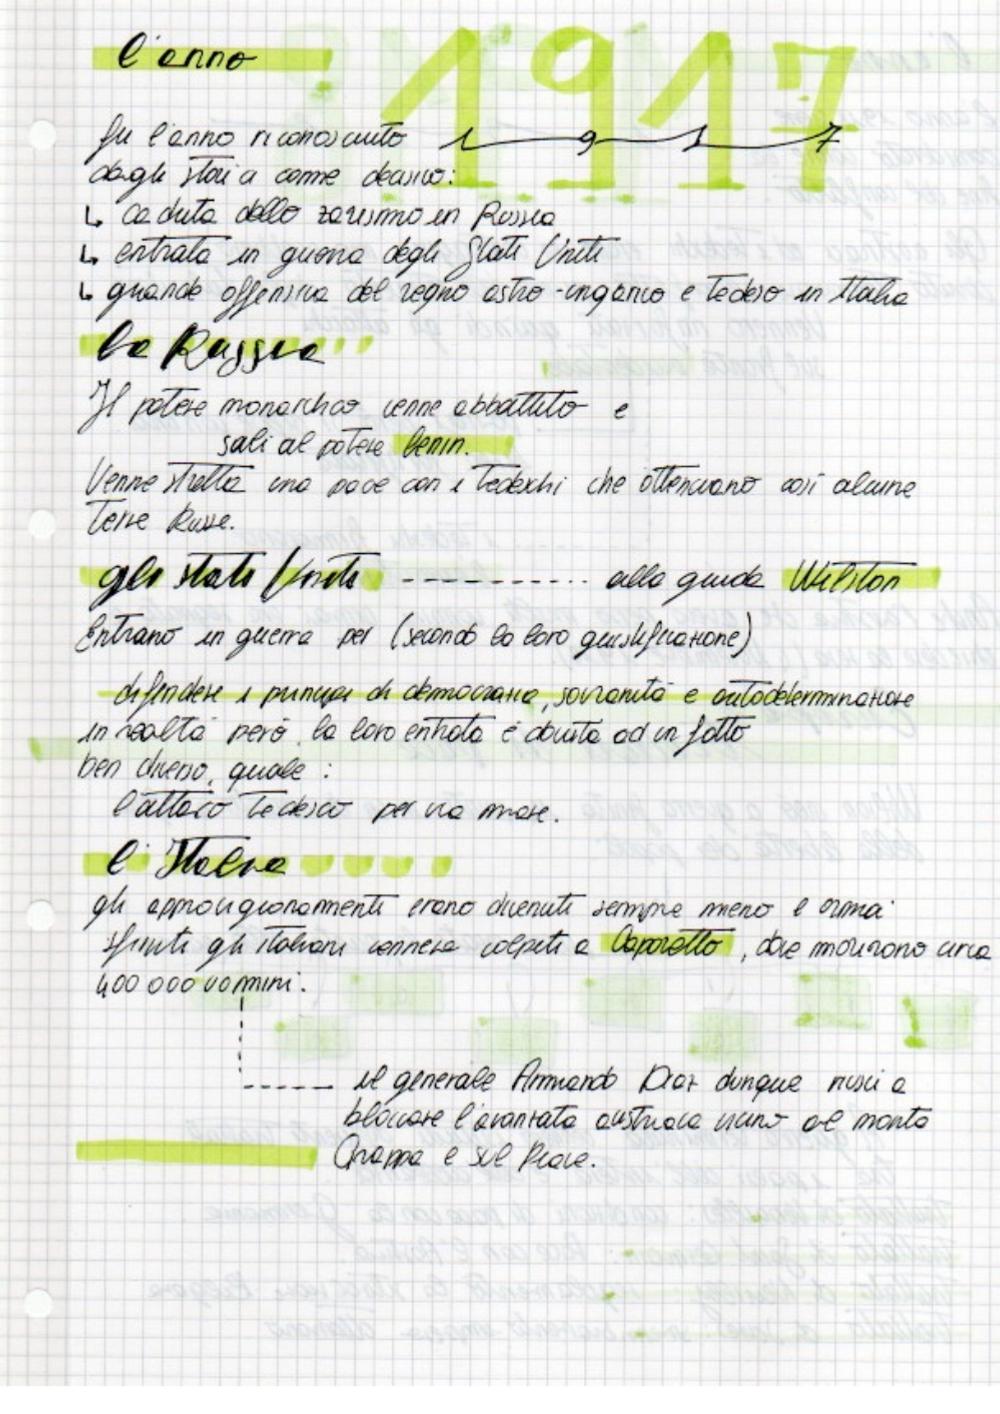 l'anno 1917
fu l'anno riconosciuto 1 9 1 7
dagli storia come decisivo:
↳ caduta dello zarismo in Russia
↳ entrata in guerra degli Stati Uniti
↳ grande offensiva del regno astro-ungarico e tedeso in Italia
la Russia
Il potere monarchico venne abbattuto e
salì al potere Lenin.
Venne stretta una pace con i tedeschi che ottenevano così alcune
terre Russe.
gli stati Uniti ----------- alla guida Wilston
Entrano in guerra per (secondo la loro giustificazione)
difendere i principi di democrazia, sovranità e autodeterminazione
in realtà però, la loro entrata è dovuta ad un fatto
ben diverso, quale:
l'attacco tedesco per via mare.
l'Italia
gli approvigionamenti erano divenuti sempre meno e ormai
sfiniti gli italiani vennero colpiti a Caporetto, dove morirono circa
400 000 uomini.
il generale Armando Diaz dunque riuscì a
bloccare l'avanzata austriaca vicino al monte
Grappa e sul Piave.